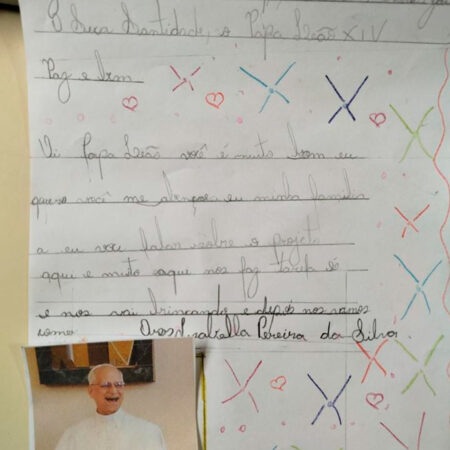 A Sua Santidade, o Papa Leão XIV
Paz e bem
Vi Papa Leão você é muito bom eu
quero você me abençoes eu minha familia
a eu vou falar sobre o projeto
aqui e muito aqui nos faz tarefa
e nos vai brincando e depois nos vamos
comer Isabella Pereira da Silva.